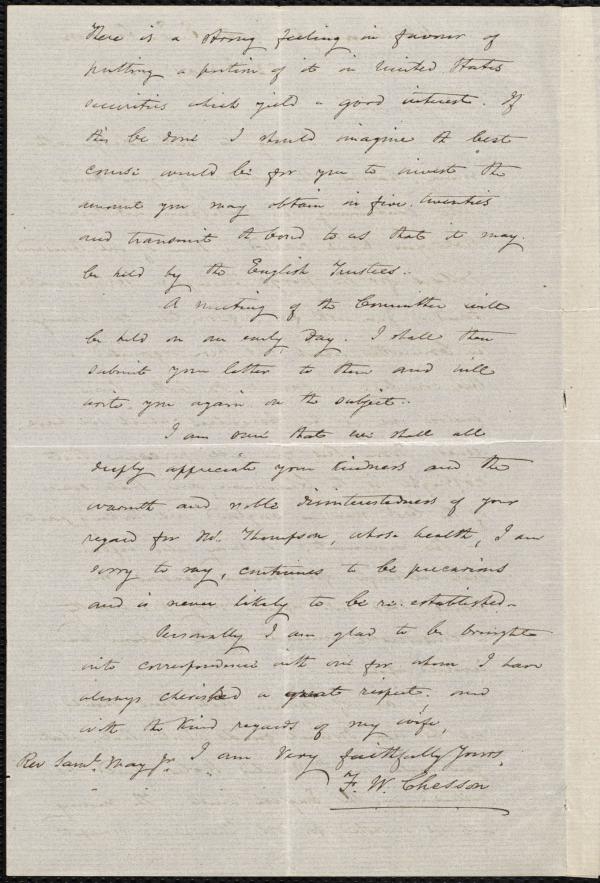 There is a strong feeling in favour of
putting a portion of it in United States
securities which yield a good interest. If
this be done I should imagine the best
course would be for you to invest the
amount you may obtain in five-twenties
and transmit the bond to us that it may
be held by the English Trustees.
A meeting of the Committee will
be held on an early day. I shall then
submit your letter to them and will
write you again on the subject.
I am sure that we shall all
deeply appreciate your kindness and the
warmth and noble disinterestedness of your
regard for Mr. Thompson, whose health, I am
sorry to say, continues to be precarious
and is never likely to be re-established.
Personally I am glad to be brought
into correspondence with one for whom I have
always cherished a great respect. and
with the kind regards of my wife,
I am Very faithfully Yours,
Rev Saml. May Jr.
F. W. Chesson